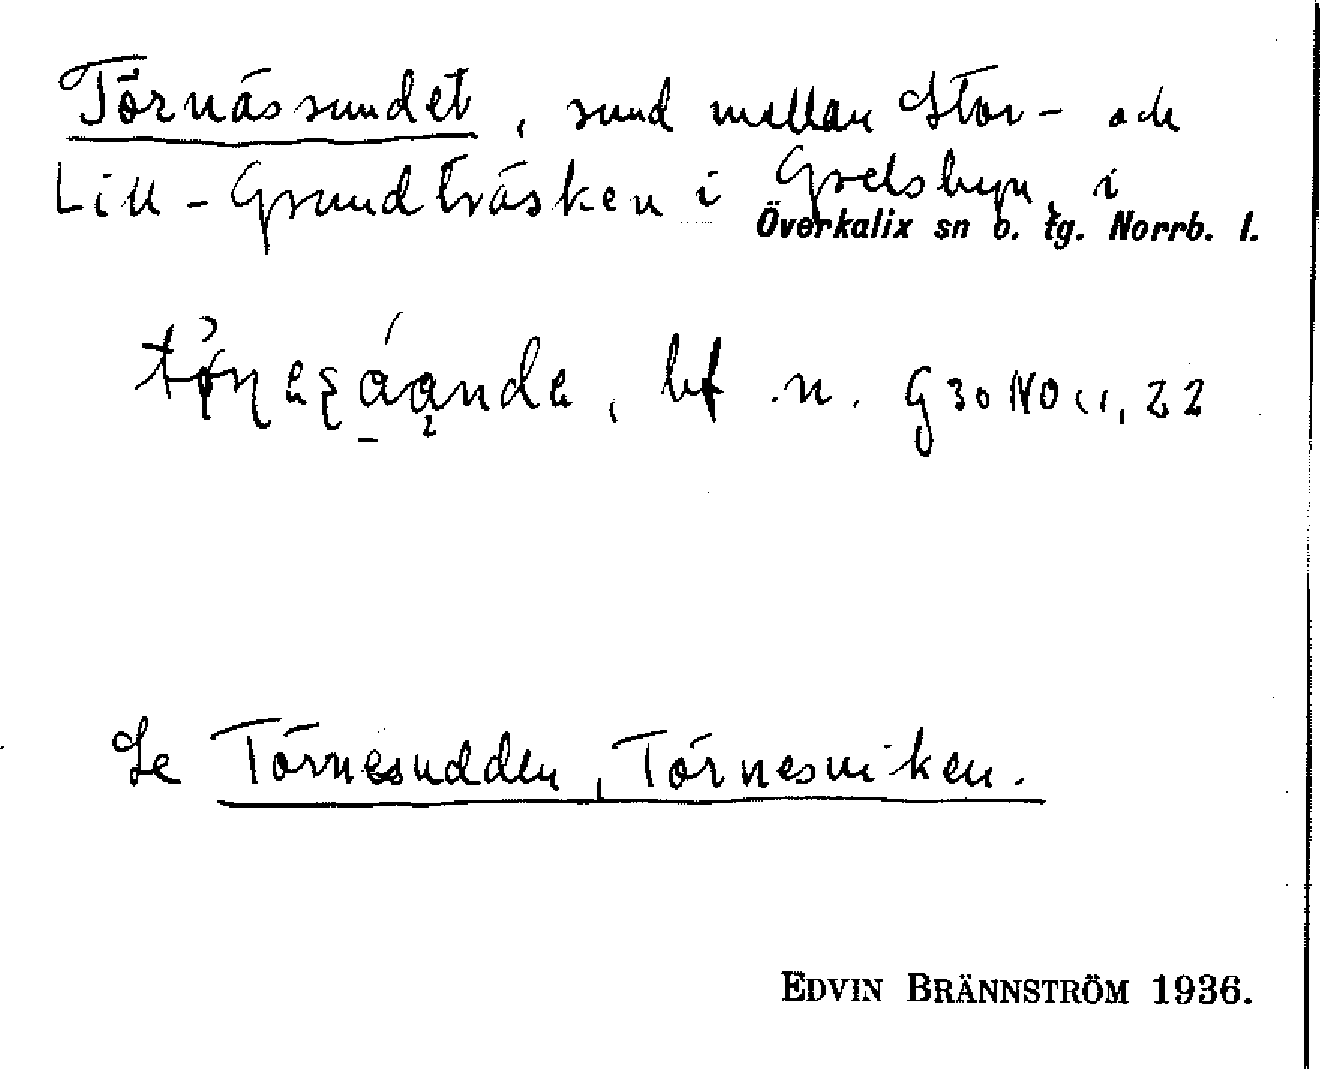 Törnässundet, sund mellan Stor- och
Lill-Grundträsken i Grelsbyn i
Överkalix sn o. tg. Norrb. l.
bf n. G 30 NO 11, 22
Se Törnesudden, Törnesviken.
EDVIN BRÄNNSTRÖM 1936.